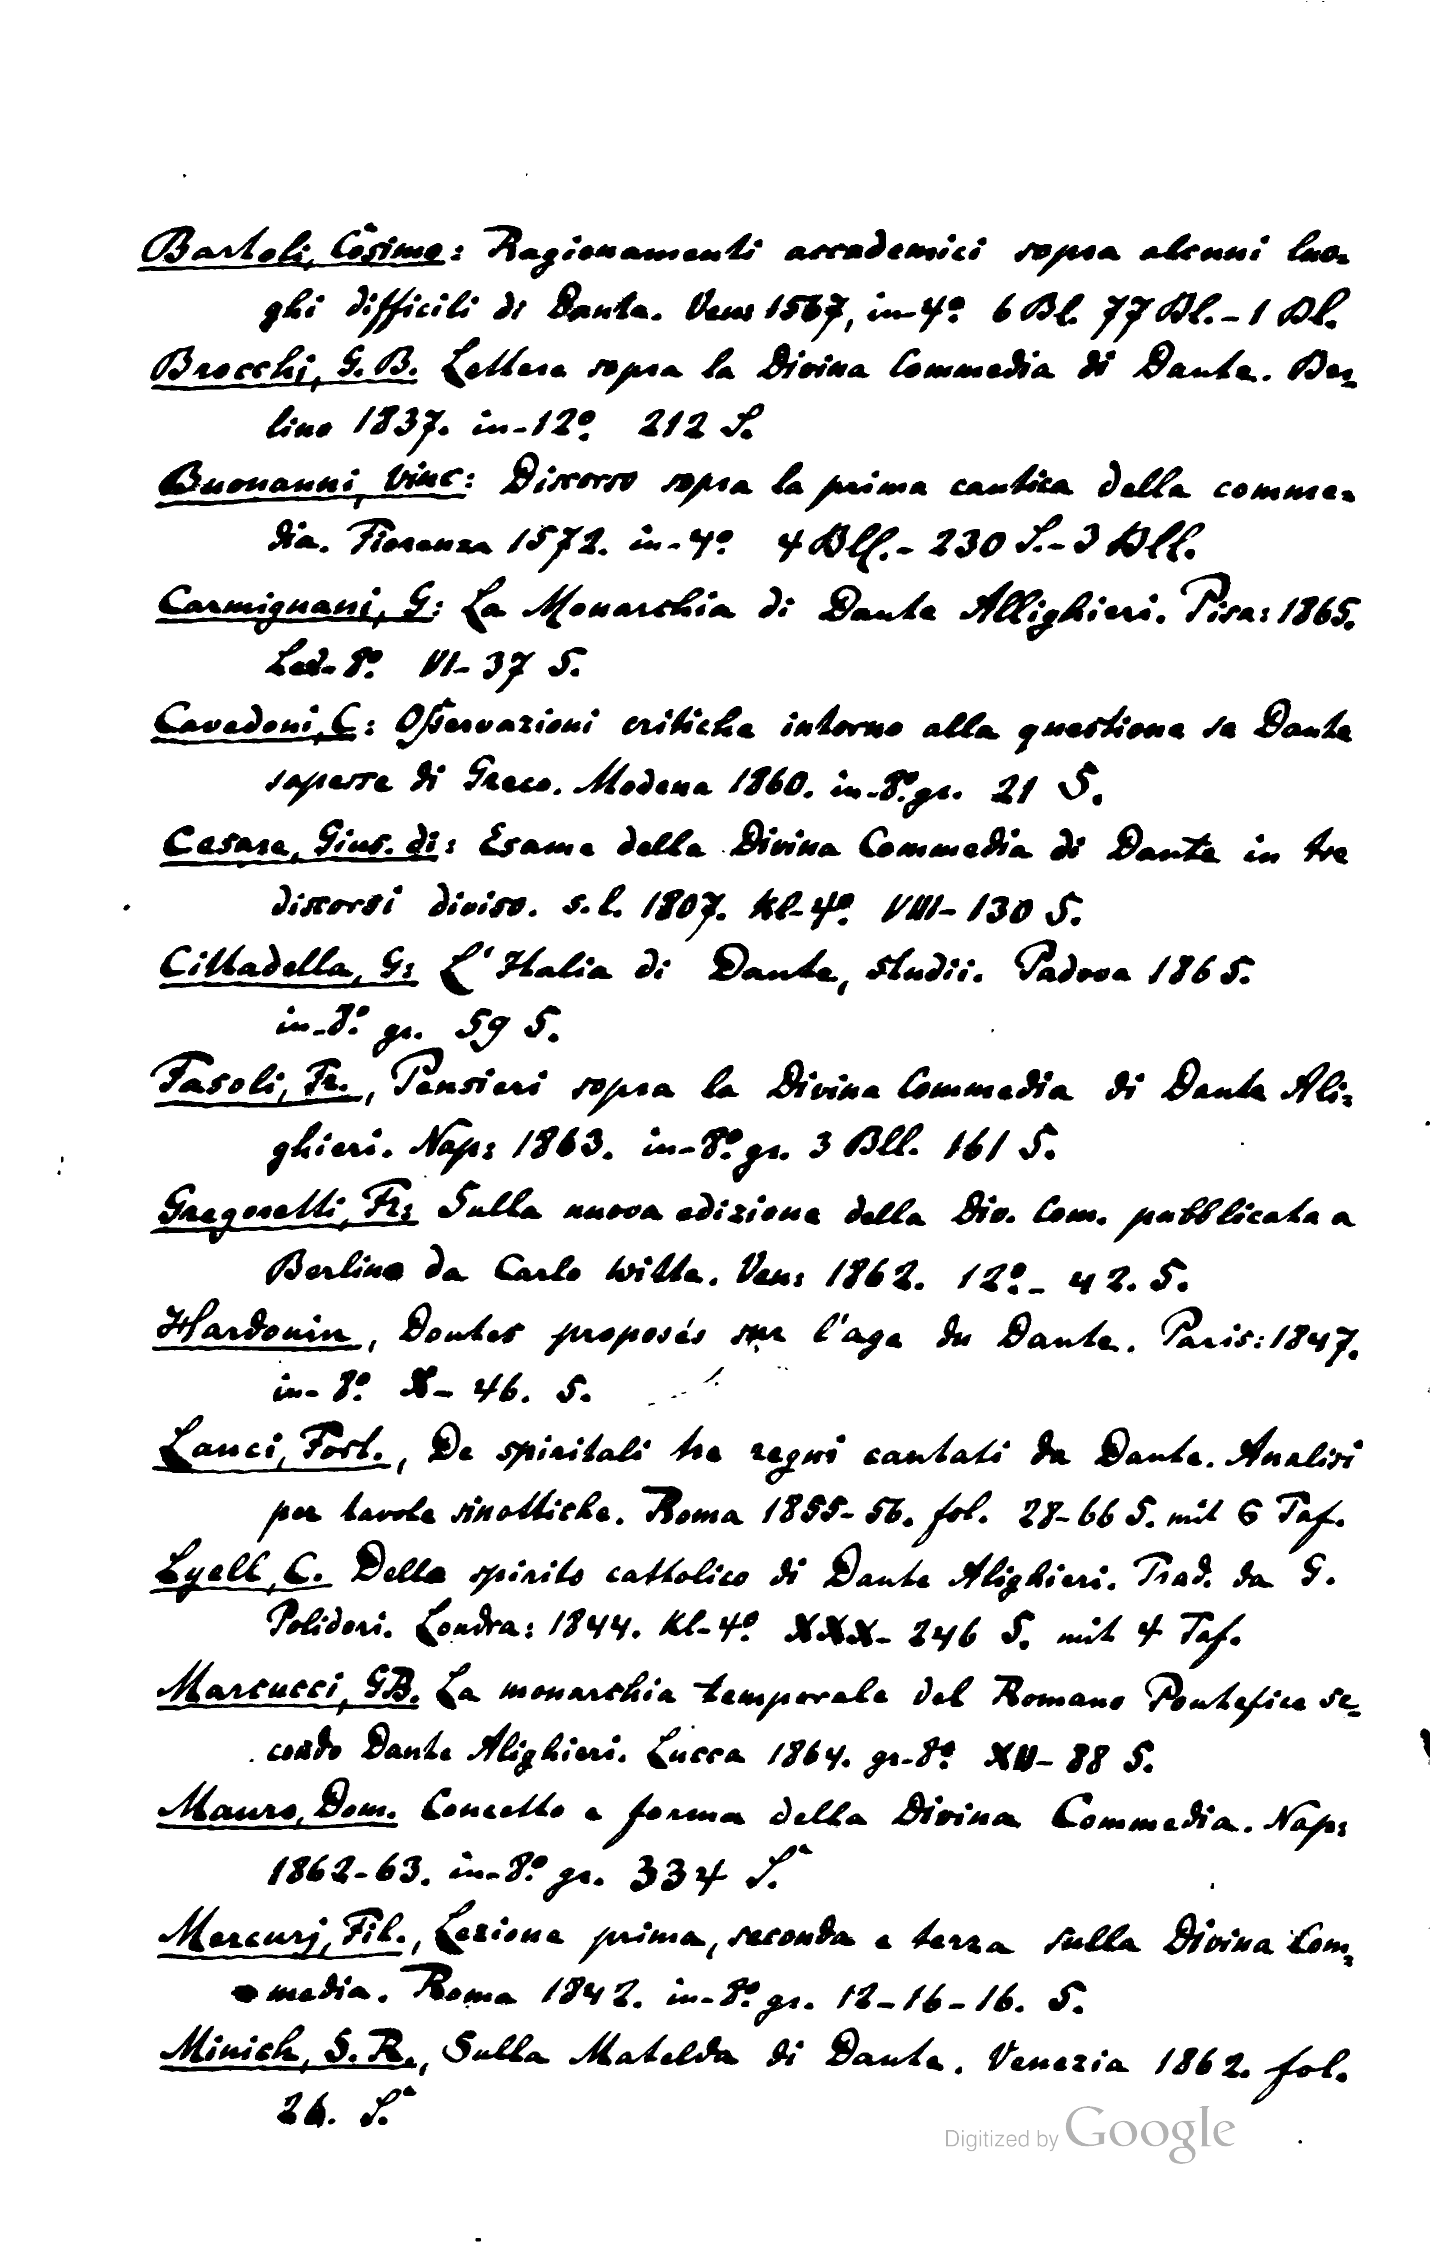 Bartoli, Cosimo: Ragionamenti accademici sopra alcuni luo=
ghi difficili di Dante. Ven: 1567, in-4º. 6 Bl. 77 Bl. - 1 Bl.
Brocchi, G. B. Lettere sopra la Divina Commedia di Dante. Ber=
lino 1837. in-12º. 212 S.
Buonanni, Vinc: Discorso sopra la prima cantica della comme=
dia. Fiorenza 1572. in-4º. 4 Bll. - 230 S. - 3 Bll.
Carmignani, G: La Monarchia di Dante Allighieri. Pisa: 1865.
Lex-8º. VI- 37 S.
Cavedoni, C: Osservazioni critiche intorno alla questione se Dante
sapesse di Greco. Modena 1860. in-8º. gr. 21 S.
Cesare, Gius. di: Esame della Divina Commedia di Dante in tre
discorsi diviso. s.l. 1807. Kl-4º. VIII- 130 S.
Cittadella, G: L'Italia di Dante, studii. Padova 1865.
in-8º. gr. 59 S.
Fasoli, Fr., Pensieri sopra la Divina Commedia di Dante Ali=
ghieri. Nap: 1863. in-8º. gr. 3 Bll. 161 S.
Gregoretti, Fr: Sulla nuova edizione della Div. Com. pubblicata a
Berlino da Carlo Witte. Ven: 1862. 12º. - 42. S.
Hardouin, Doutes proposés sur l'age du Dante. Paris: 1847.
in-8º. X- 46. S.
Lanci, Fort., De spiritali tre regni cantati da Dante. Analisi
per tavole sinottiche. Roma 1855-56. fol. 28-66 S. mit 6 Taf.
Lyell, C. Dello spirito cattolico di Dante Alighieri. Trad. da G.
Polidori. Londra: 1844. Kl-4º. XXX- 246 S. mit 4 Taf.
Marcucci, GB. La monarchia temporale del Romano Pontefice se=
condo Dante Alighieri. Lucca 1864. gr-8º. XII- 88 S.
Mauro, Dom. Concetto e forma della Divina Commedia. Nap:
1862-63. in-8º. gr. 334 S.
Mercurj, Fil., Lezione prima, seconda e terza sulla Divina Com=
media. Roma 1842. in-8º. gr. 12-16-16. S.
Minich, S. R., Sulla Matelda di Dante. Venezia 1862. fol.
26. S.
Digitized by Google